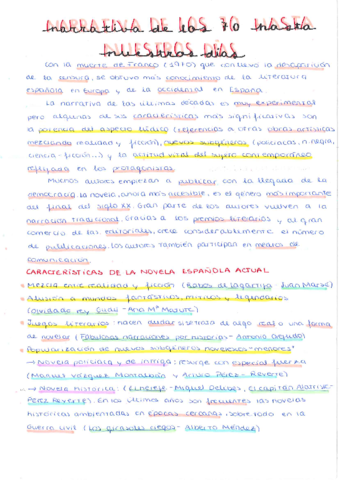 NARRATIVA DE LOS 70 HASTA
NUESTROS DÍAS
Con la muerte de Franco (1970) que conllevó la desaparición
de la censura, se obtuvo más conocimiento de la literatura
española en Europa y de la occidental en España.
La narrativa de las últimas décadas es muy experimental
pero algunas de sus características más significativas son
la potencia del aspecto lúdico (referencias a otras obras artísticas
mezclando realidad y ficción), nuevos subgéneros (policíacas, n. negra,
ciencia-ficción...) y la actitud vital del sujeto contemporáneo
reflejada en los protagonistas.
Muchos autores empiezan a publicar con la llegada de la
democracia. La novela, ahora más accesible, es el género más importante
del final del siglo XX. Gran parte de los autores vuelven a la
narración tradicional. Gracias a los premios literarios y al gran
comercio de las editoriales, crece considerablemente el número
de publicaciones. Los autores también participan en medios de
comunicación.
CARACTERÍSTICAS DE LA NOVELA ESPAÑOLA ACTUAL
Mezcla entre realidad y ficción (Rabos de lagartija - Juan Marsé)
Alusión a mundos fantásticos, míticos y legendarios
(Olvidado rey Gudú - Ana Mª Matute)
Juegos literarios: hacen dudar si se trata de algo real o una forma
de novelar (Fabulosas narraciones por historias - Antonio Orejudo)
Popularización de nuevos subgéneros novelescos "menores"
→ Novela policíaca y de intriga: resurge con especial fuerza
(Manuel Vázquez Montalbán y Arturo Pérez-Reverte)
→ Novela histórica: (El hereje - Miguel Delibes, El capitán Alatriste -
Pérez Reverte). En los últimos años son frecuentes las novelas
históricas ambientadas en épocas cercanas, sobre todo en la
Guerra Civil (Los girasoles ciegos - Alberto Méndez)